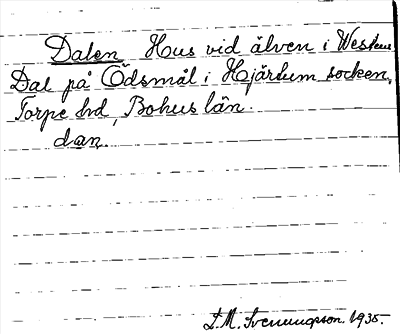 Dalen Hus vid älven i Westen
Dal på Ödsmål i Hjärtum socken,
Torpe hrd, Bohus län.
dan.
L.M. Svenungsson. 1935.